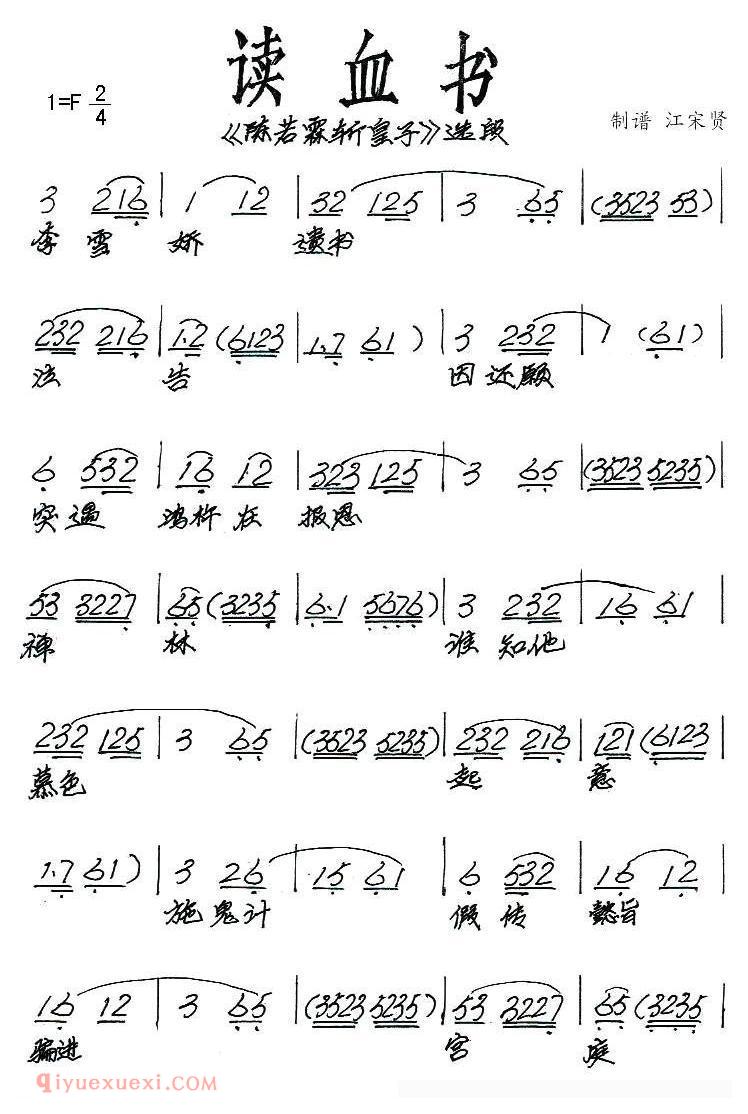 读血书
1=F 2/4
《陈若霖斩皇子》选段
制谱 江宋贤
3 216 | 1 12 | 32 125 | 3 65 | (3523 53) |
李雪 娇 遗书
232 216 | 1·2 (6123 | 1·7 61) | 3 232 | 1 (61) |
泣 告 因还愿
6 532 | 16 12 | 323 125 | 3 65 | (3523 5235) |
突遇 鸿 在 报恩
53 3227 | 65 (3235 | 6·1 5676) | 3 232 | 16 61 |
禅 林 谁 知他
232 125 | 3 65 | (3523 5235) | 232 216 | 121 (6123 |
慕色 起 意
1·7 61) | 3 26 | ·15 61 | 6 532 | 16 12 |
施鬼计 假传 懿旨
16 12 | 3 65 | (3523 5235) | 53 3227 | 65 (3235 |
骗进 宫 庭
qiyuexuexi.com